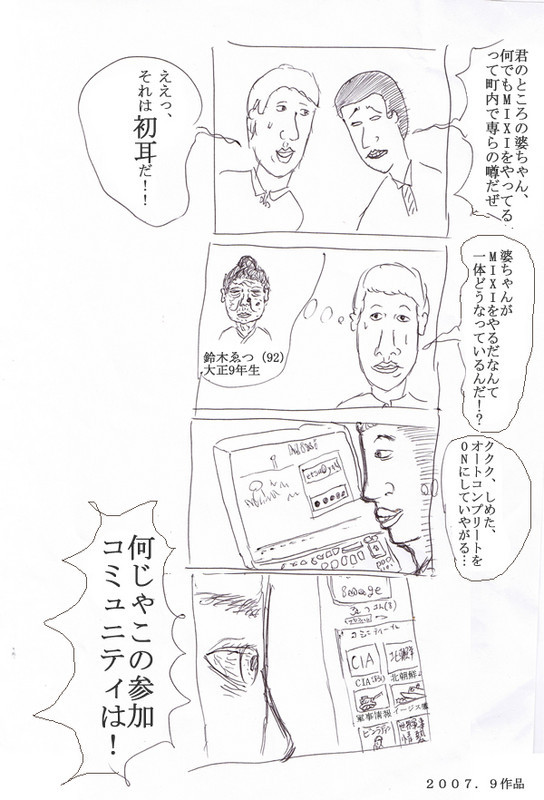 君のところの婆ちゃん、
何でもMIXIをやってる
って町内で専らの噂だぜ
ええっ、
それは初耳だ！！
婆ちゃんが
MIXIをやるだなんて
一体どうなっているんだ！？
鈴木ゑつ（92）
大正9年生
ククク、しめた、
オートコンプリートを
ONにしていやがる…
CIA
北朝鮮
CIA
北朝鮮
軍事情報
イージス艦
ビンラディン
世界軍事
情報
何じゃこの参加
コミュニティは！
2007．9作品